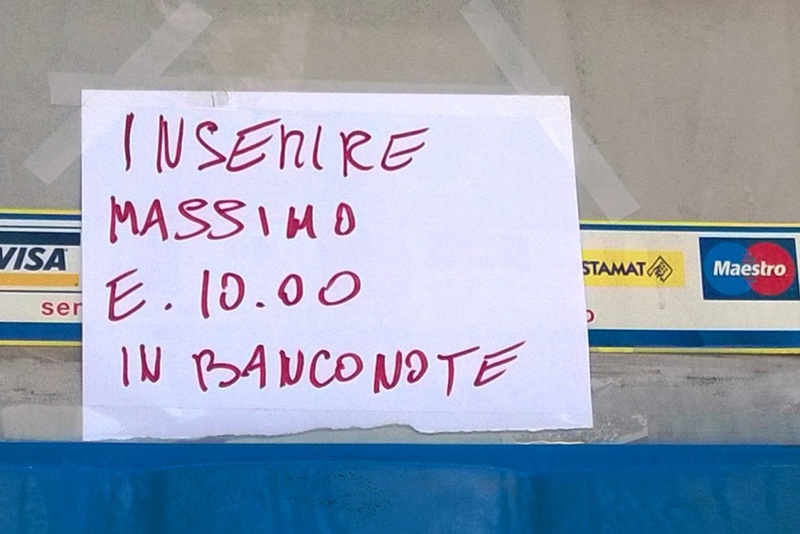 INSERIRE
MASSIMO
E. 10.00
IN BANCONOTE
VISA
STAMAT
Maestro
ser
o